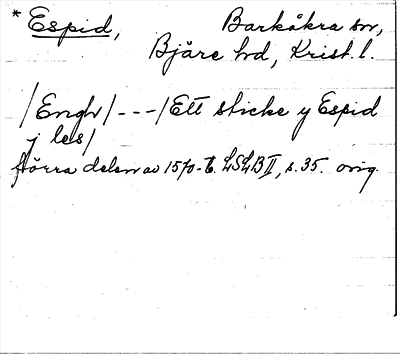 * Espid, Barkåkra sn,
Bjäre hd, Krist. l.
/Engh/ - - - /Ett sticke y Espid
j les/
större delen av 1570-t. LSLB II, s. 35. orig.